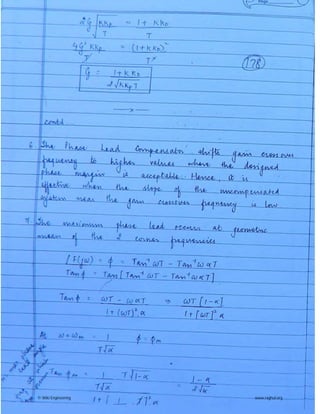 2G √KKp/T = 1 + KKD/T
4G² KKp/T = (1+KKD)²/T²
G = 1+KKD / 2√KKpT
178
contd..
6. The Phase Lead Compensator shifts gain crossover
frequency to higher values where the designed
phase margin is acceptable. Hence, it is
effective when the slope of the uncompensated
system near the gain crossover frequency is low.
7. The maximum phase lead occurs at geometric
mean of the 2 corner frequencies
∠F(jω) = ϕ = Tan⁻¹ ωT − Tan⁻¹ ωαT
Tanϕ = Tan[Tan⁻¹ ωT − Tan⁻¹ ωαT]
Tanϕ = ωT − ωαT / 1+(ωT)²α ⇒ ωT[1−α] / 1+[ωT]²α
At ω=ωm = 1/T√α ϕ=ϕm
Tan ϕm = 1/T√α T[1−α] = 1−α/2√α
www.raghul.org